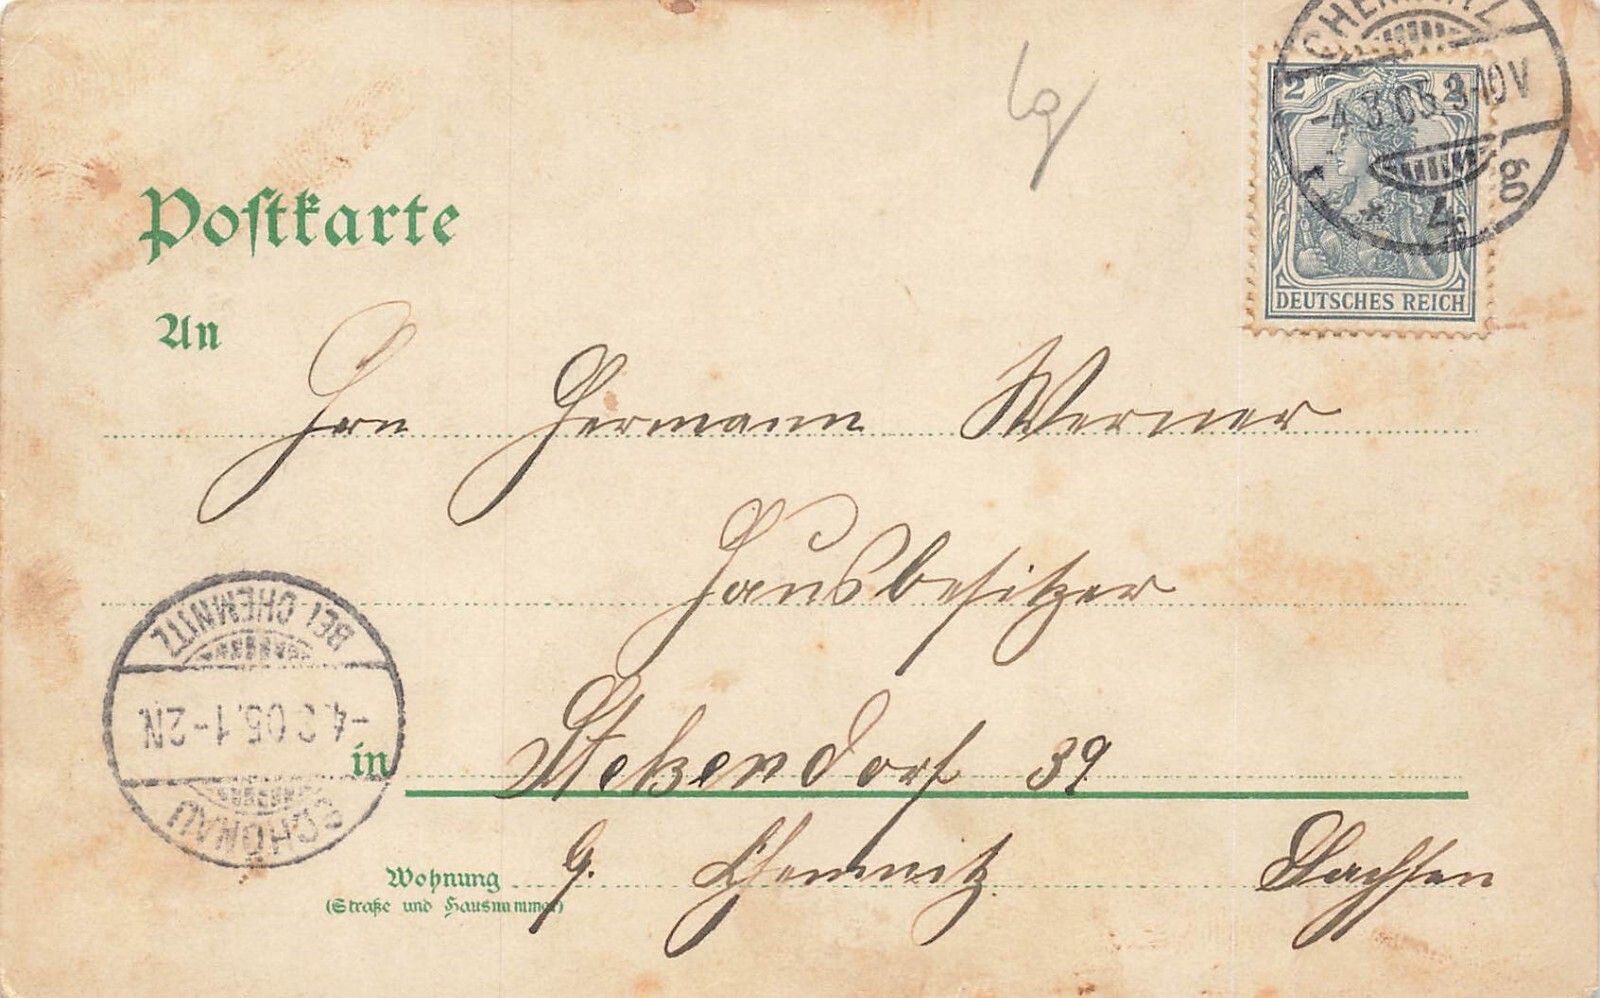 Postkarte
An
Hrn Hermann Werner
Hausbesitzer
in Stelzendorf 39
Wohnung
(Straße und Hausnummer)
Chemnitz Sachsen
2 2
DEUTSCHES REICH
CHEMNITZ
-4.3.05.9-10V
* 4
BEI CHEMNITZ
-4.3.05.1-2N
SCHÖNAU